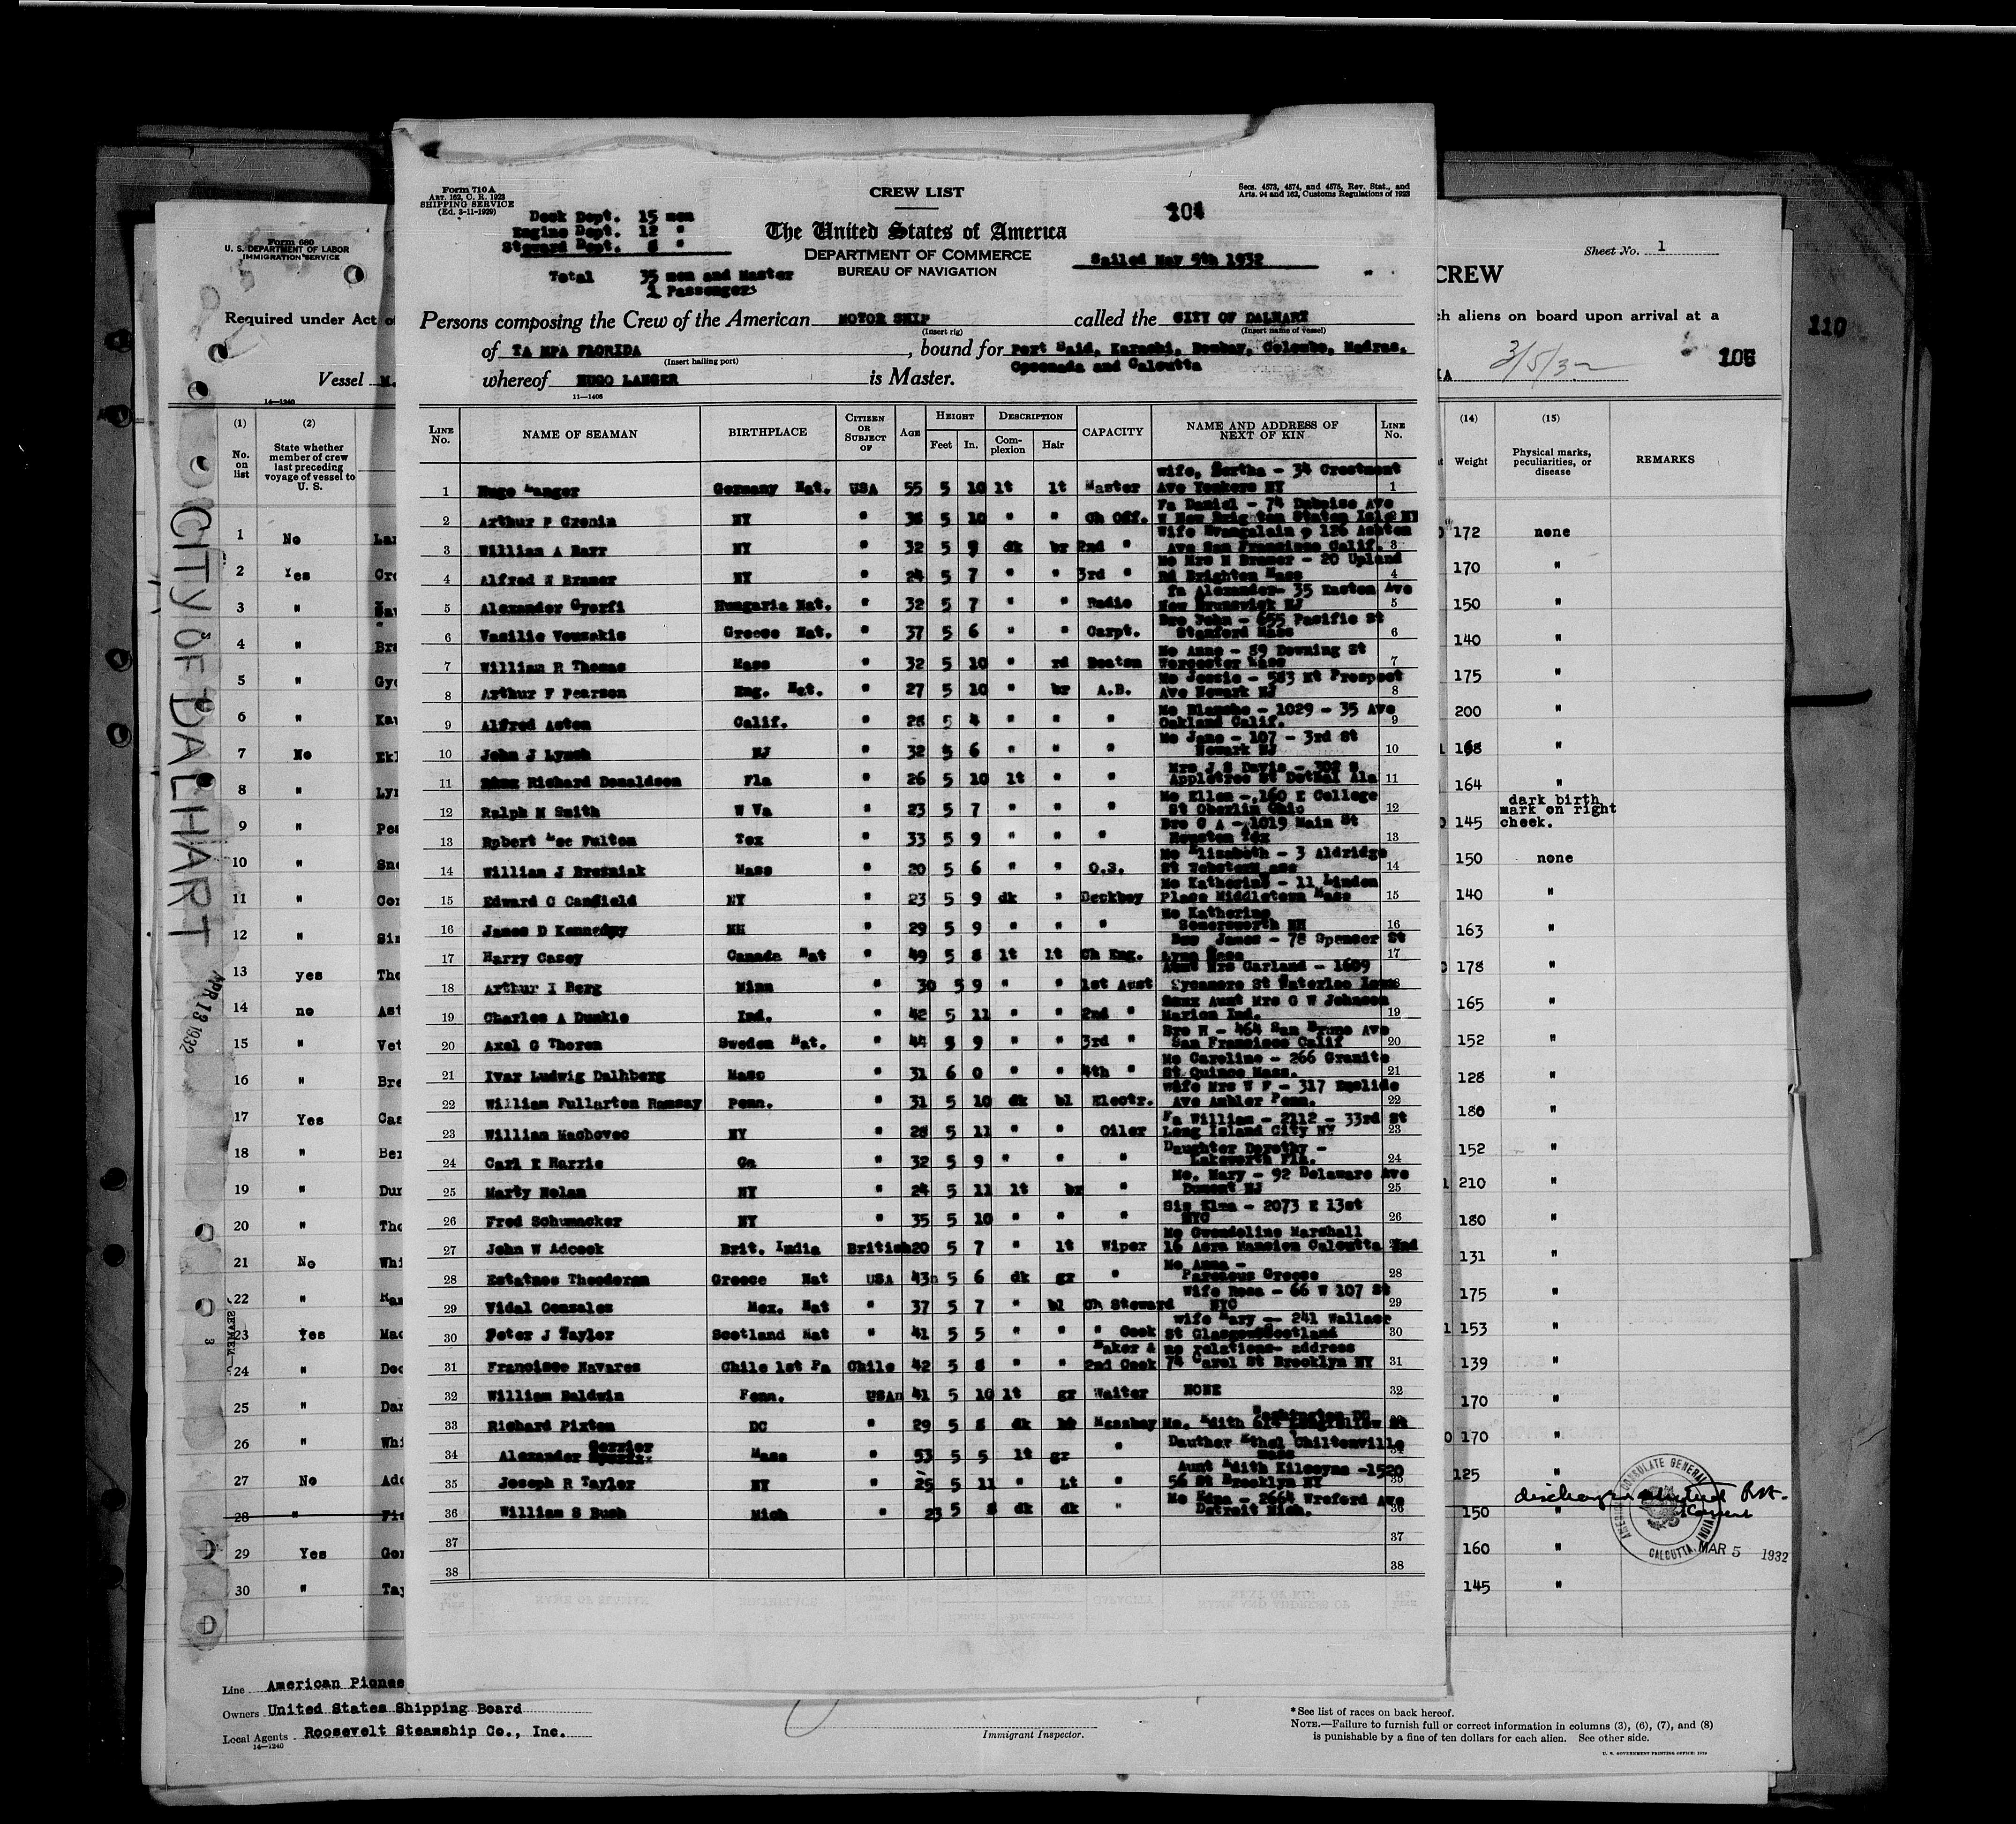 Form 710A
ART. 162, C. R. 1923
SHIPPING SERVICE
(Ed. 3-11-1929)
CREW LIST
Secs. 4573, 4574, and 4575, Rev. Stat., and
Arts. 94 and 162, Customs Regulations of 1923
104
Deck Dept. 15 men
Engine Dept. 12 "
Steward Dept. 8 "
Total 35 men and Master
1 Passenger
The United States of America
DEPARTMENT OF COMMERCE
BUREAU OF NAVIGATION
Sailed May 5th 1932
Persons composing the Crew of the American MOTOR SHIP called the CITY OF DALHART
(Insert rig) (Insert name of vessel)
of TAMPA FLORIDA, bound for Port Said, Karachi, Bombay, Colombo, Madras,
(Insert hailing port)
Coconada and Calcutta
whereof HUGO LANGER is Master.
11—1408
LINE No. NAME OF SEAMAN BIRTHPLACE CITIZEN OR SUBJECT OF AGE HEIGHT Feet In. DESCRIPTION Complexion Hair CAPACITY NAME AND ADDRESS OF NEXT OF KIN LINE No.
1 Hugo Langer Germany Nat. USA 55 5 10 lt lt Master wife, Bertha - 34 Crestmont Ave Yonkers NY 1
2 Arthur P Cronin NY " 5 10 " " Ch Off. Fa Daniel - 74
3 William A Barr NY " 32 5 9 dk br 2nd " Wife Evangalain 126 Ashton Ave San Francisco Calif. 3
4 Alfred W Bramer NY " 24 5 7 " " 3rd " Mo Mrs M Bramer - 20 Upland Rd Brighton Mass 4
5 Alexander Gyorfi Hungaria Nat. " 32 5 7 " " Radio fa Alexander- 35 Easton Ave New Brunswick NJ 5
6 Vasilie Vouzakis Greece Nat. " 37 5 6 " " Carpt. Bro John - 655 Pacific St Stamford Mass 6
7 William R Thomas Mass " 32 5 10 " rd Boatsn Mo Anne - 89 Downing St Worcester Mass 7
8 Arthur F Pearson Eng. Nat. " 27 5 10 " br A.B. Mo Jessie - 583 Mt Prospect Ave Newark NJ 8
9 Alfred Aston Calif. " 28 5 4 " " " Mo Blanche - 1029 - 35 Ave Oakland Calif. 9
10 John J Lynch NJ " 32 5 6 " " " Mo Jane - 107 - 3rd St Newark NJ 10
11 Richard Donaldson Fla " 26 5 10 lt " " Mrs J S Davis - 302 S Appletree St Dothal Ala 11
12 Ralph N Smith W Va " 23 5 7 " " " Mo Ellen - 160 E College St Oberlin Ohio 12
13 Robert Lee Fulton Tex " 33 5 9 " " " Bro C A - 1019 Main St Houston Tex 13
14 William J Brezniak Mass " 20 5 6 " " O.S. Mo Elizabeth - 3 Aldridge St Webster Mass 14
15 Edward C Canfield NY " 23 5 9 dk " Deckboy Mo Katherine - 11 Linden Place Middletown Mass 15
16 James D Kennedy NH " 29 5 9 " " " Mo Katherine Somersworth NH 16
17 Harry Casey Canada Nat " 49 5 8 lt lt Ch Eng. James - 78 Spencer St Lynn Mass 17
18 Arthur I Berg Minn " 30 5 9 " " 1st Asst Aunt Mrs Garland - 1609 Sycamore St Waterloo Iowa
19 Charles A Dunkle Ind. " 42 5 11 " " 2nd " Aunt Mrs G W Johnson Marion Ind. 19
20 Axel G Thoren Sweden Nat. " 44 5 9 " " 3rd " Bro H - 464 San Bruno Ave San Francisco Calif 20
21 Ivar Ludwig Dalhberg Mass " 31 6 0 " " 4th " Mo Caroline - 266 Granite St Quince Mass. 21
22 William Fullerton Ramsay Penn. " 31 5 10 dk bl Electr. wife Mrs W F - 317 Euclide Ave Ambler Penn. 22
23 William Machovec NY " 28 5 11 " " Oiler Fa William - 2112 - 33rd St Long Island City NY 23
24 Carl E Harris Ga " 32 5 9 " " " Daughter Dorothy - Lakeworth Fla. 24
25 Marty Nolan NY " 24 5 11 lt br " Mo. Mary - 92 Delaware Ave Dumont NJ 25
26 Fred Schumacker NY " 35 5 10 " " " Sis Elma - 2073 E 13st NYC 26
27 John W Adcock Brit. India British 20 5 7 " lt Wiper Mo Gwendoline Marshall 16 Asra Mansion Calcutta Ind
28 Estatnos Theodoran Greece Nat USA 43 5 6 dk gr " Mo Anna - Greece 28
29 Vidal Gonzales Mex. Nat " 37 5 7 " bl Ch Steward Wife Rosa - 66 W 107 St NYC 29
30 Peter J Taylor Scotland Nat " 41 5 5 " " " Cook wife Mary - 241 Wallace St Glasgow Scotland 30
31 Francisco Navares Chile 1st Pa Chile 42 5 8 " " Baker & 2nd Cook no relations- address 74 Carol St Brooklyn NY 31
32 William Baldwin Penn. USA 41 5 10 lt gr Waiter NONE 32
33 Richard Pixton DC " 29 5 8 dk Messboy Mo. Edith 614 Longfellow St Washington DC
34 Alexander Gerrier Mass " 53 5 5 lt gr " Dauther Ethel Chiltonville Mass 34
35 Joseph R Taylor NY " 25 5 11 " Lt " Aunt Edith Kilcoyne -1520 56 St Brooklyn NY 35
36 William S Bush Mich " 23 5 8 dk dk " Mo Edna - 2664 Wreford Ave Detroit Mich. 36
37 37
38 38
Form 680
U. S. DEPARTMENT OF LABOR
IMMIGRATION SERVICE
Required under Act of
Vessel M.
14—1240
CITY OF DALHART
APR 13 1932
(1) No. on list
(2) State whether member of crew last preceding voyage of vessel to U. S.
1 No Lan
2 Yes Cro
3 " Bar
4 " Bra
5 " Gyo
6 " Kav
7 No Ekl
8 " Lyn
9 " Pea
10 " Sno
11 " Cor
12 " Sim
13 yes Tho
14 no Ast
15 " Vet
16 " Bre
17 Yes Cas
18 " Ber
19 " Dun
20 " Tho
21 No Whi
22 " Ram
23 Yes Mac
24 " Doc
25 " Dar
26 " Whi
27 No Adc
28 " Fis
29 Yes Gon
30 " Tay
Line American Pionee
Owners United States Shipping Board
Local Agents Roosevelt Steamship Co., Inc.
14—1240
Immigrant Inspector.
Sheet No. 1
CREW
ch aliens on board upon arrival at a
3/5/32
110
(14) Weight
(15) Physical marks, peculiarities, or disease
REMARKS
172 none
170 "
150 "
140 "
175 "
200 "
168 "
164 "
145 dark birth mark on right cheek.
150 none
140 "
163 "
178 "
165 "
152 "
128 "
180 "
152 "
210 "
180 "
131 "
175 "
153 "
139 "
170 "
170 "
125 "
150 "
160 "
145 "
AMERICAN CONSULATE GENERAL
CALCUTTA, INDIA
MAR 5 1932
*See list of races on back hereof.
NOTE.—Failure to furnish full or correct information in columns (3), (6), (7), and (8)
is punishable by a fine of ten dollars for each alien. See other side.